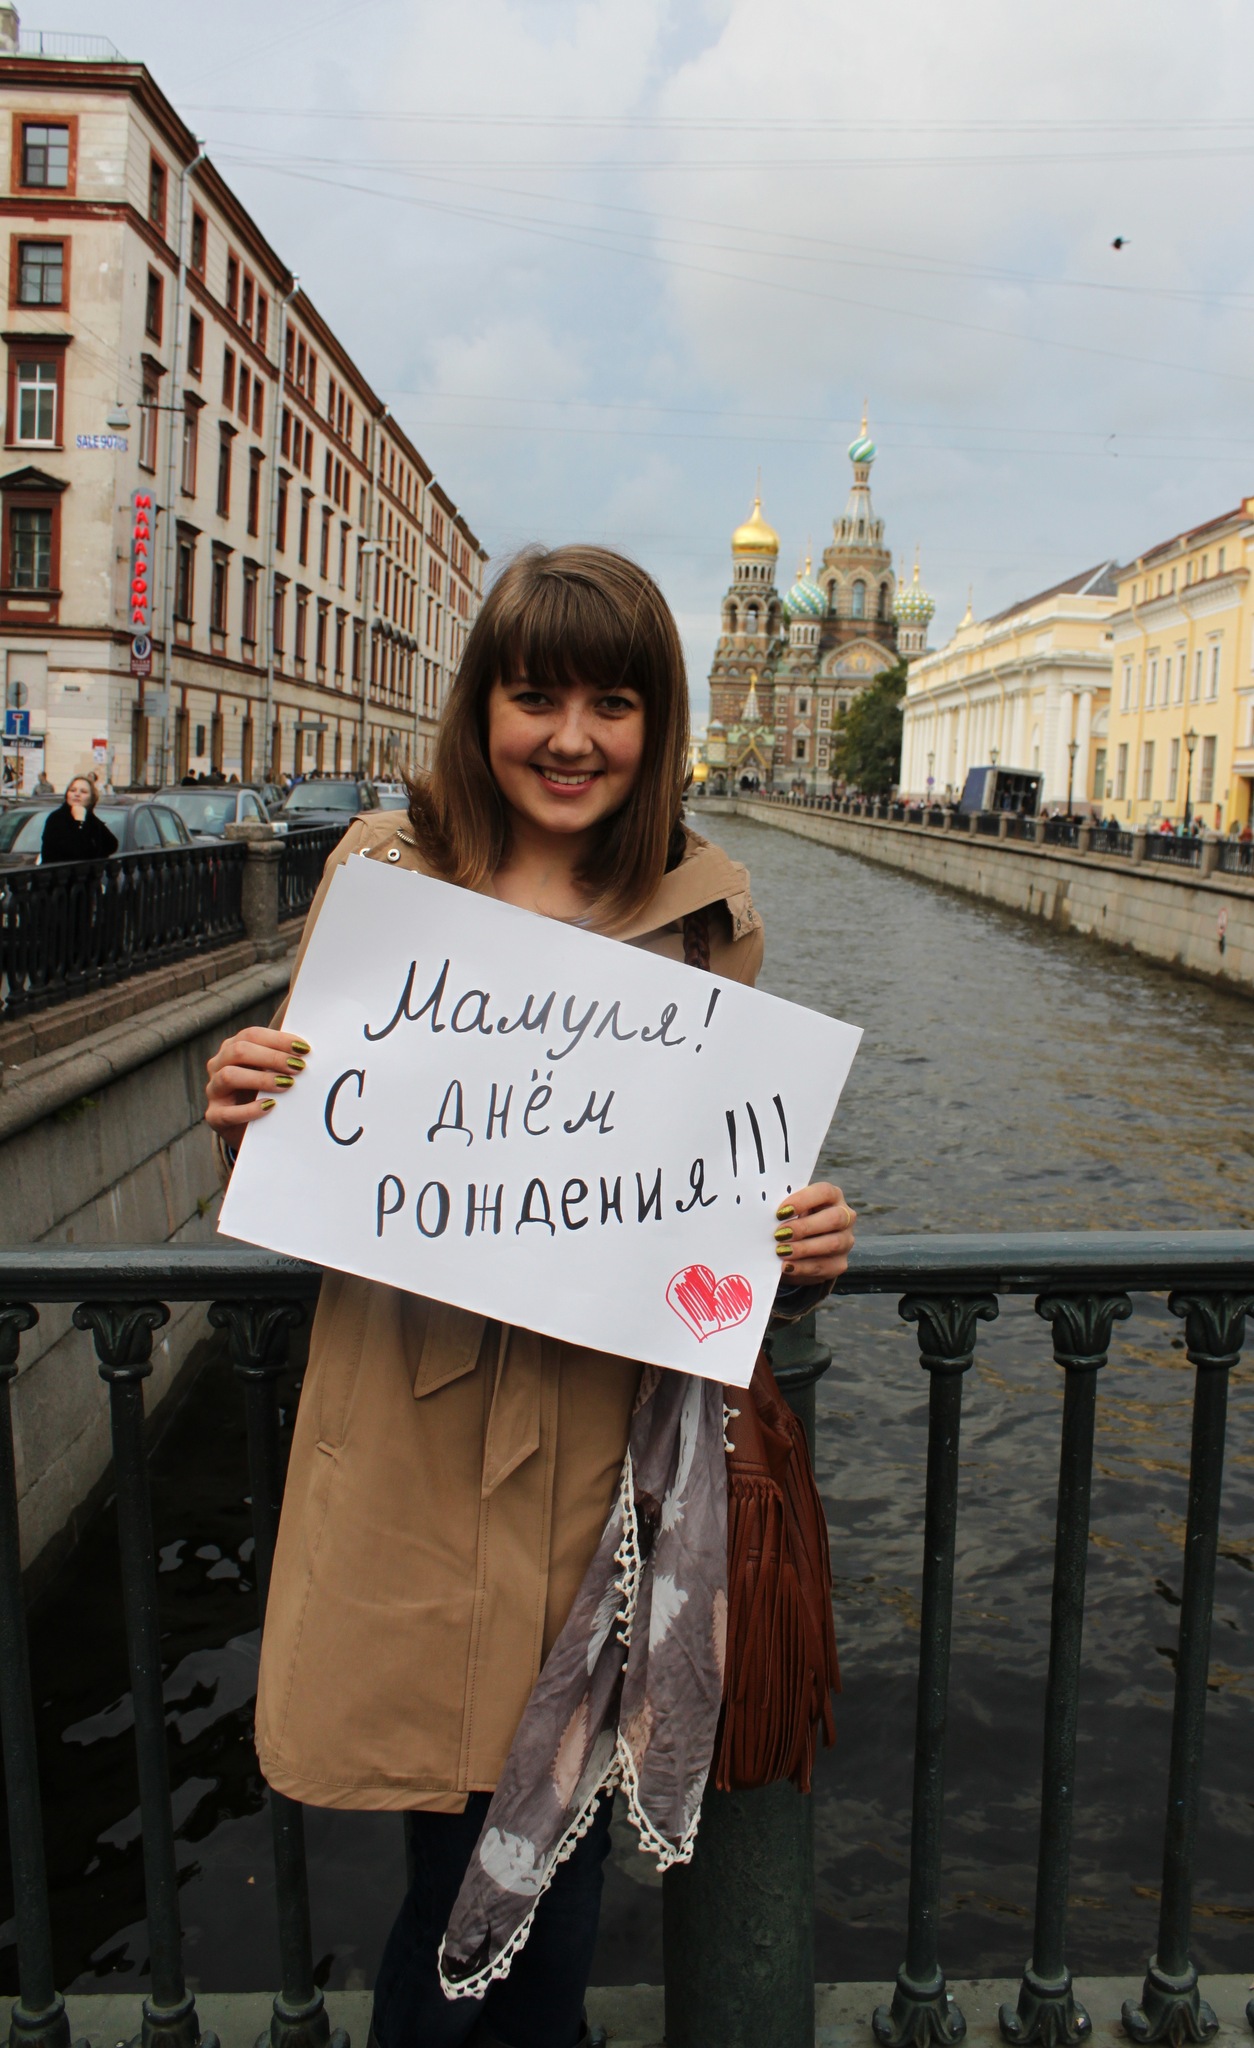 SALE
МАМА РОМА
Мамуля!
С днём
рождения!!!